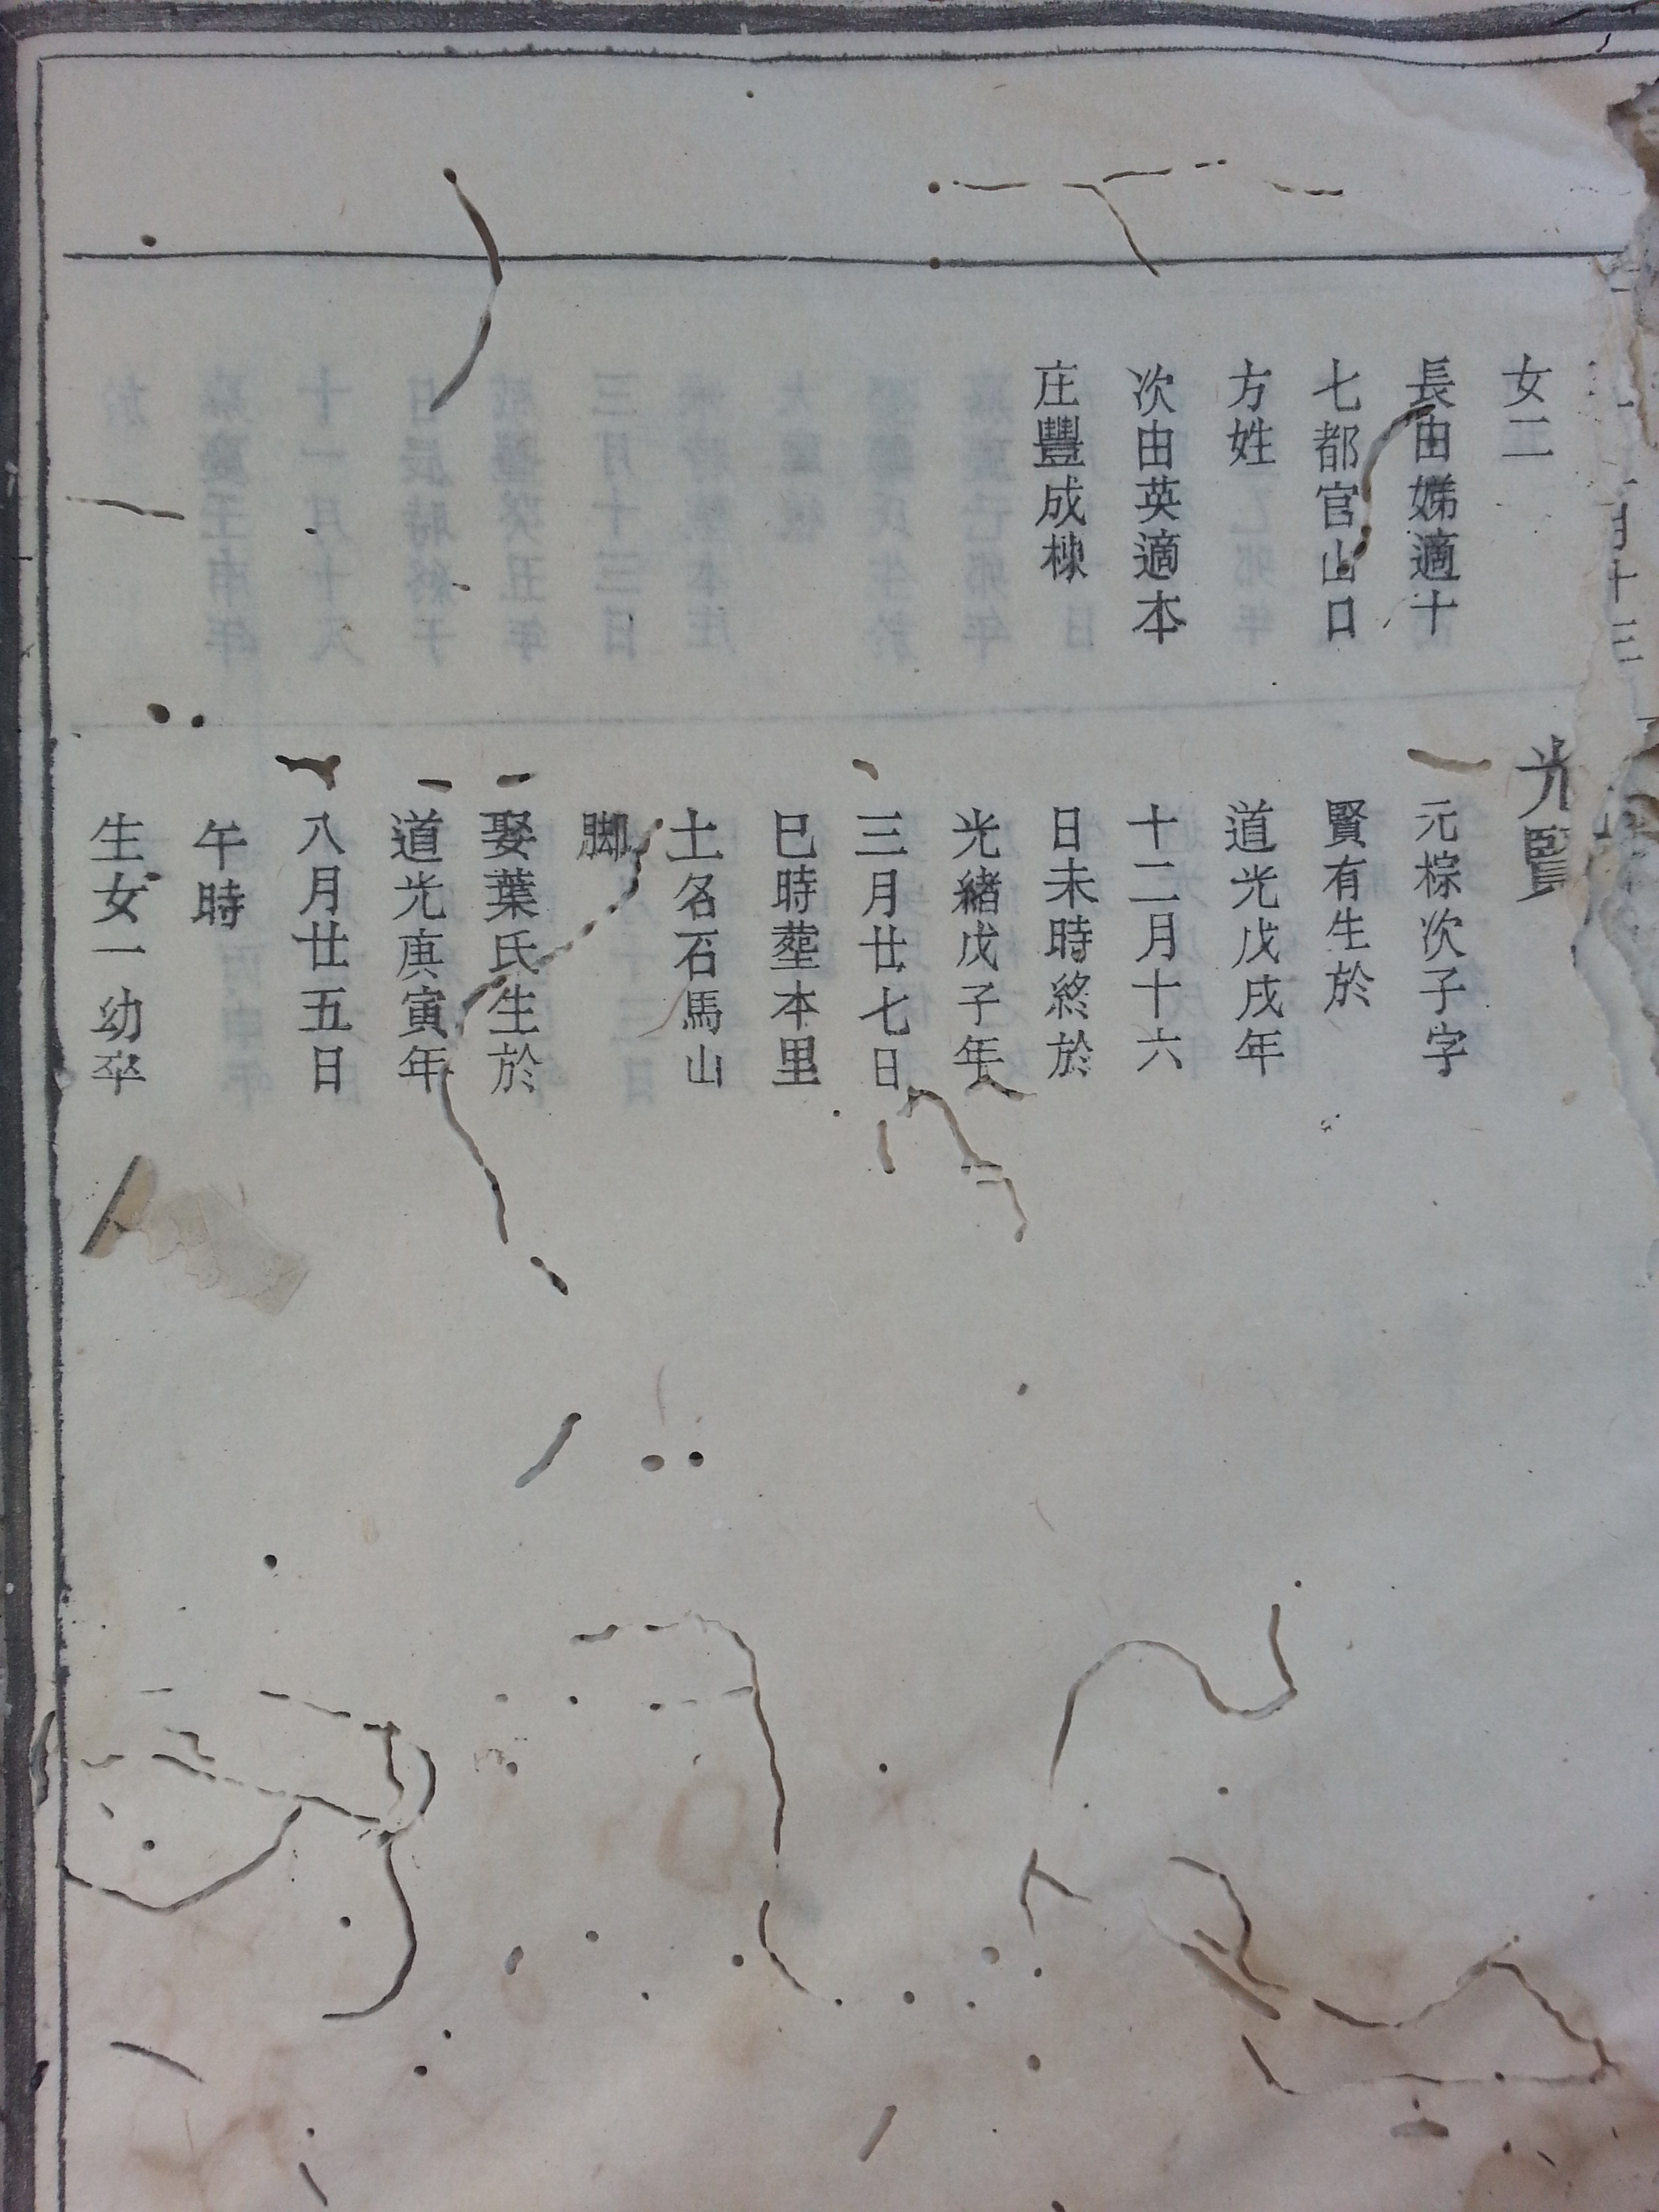 女二
長由娣適十
七都官山口
方姓
次由英適本
庄豐成棟
光賢
元棕次子字
賢有生於
道光戊戌年
十二月十六
日未時終於
光緒戊子年
三月廿七日
巳時塟本里
土名石馬山
脚
娶葉氏生於
道光庚寅年
八月廿五日
午時
生女一幼卒